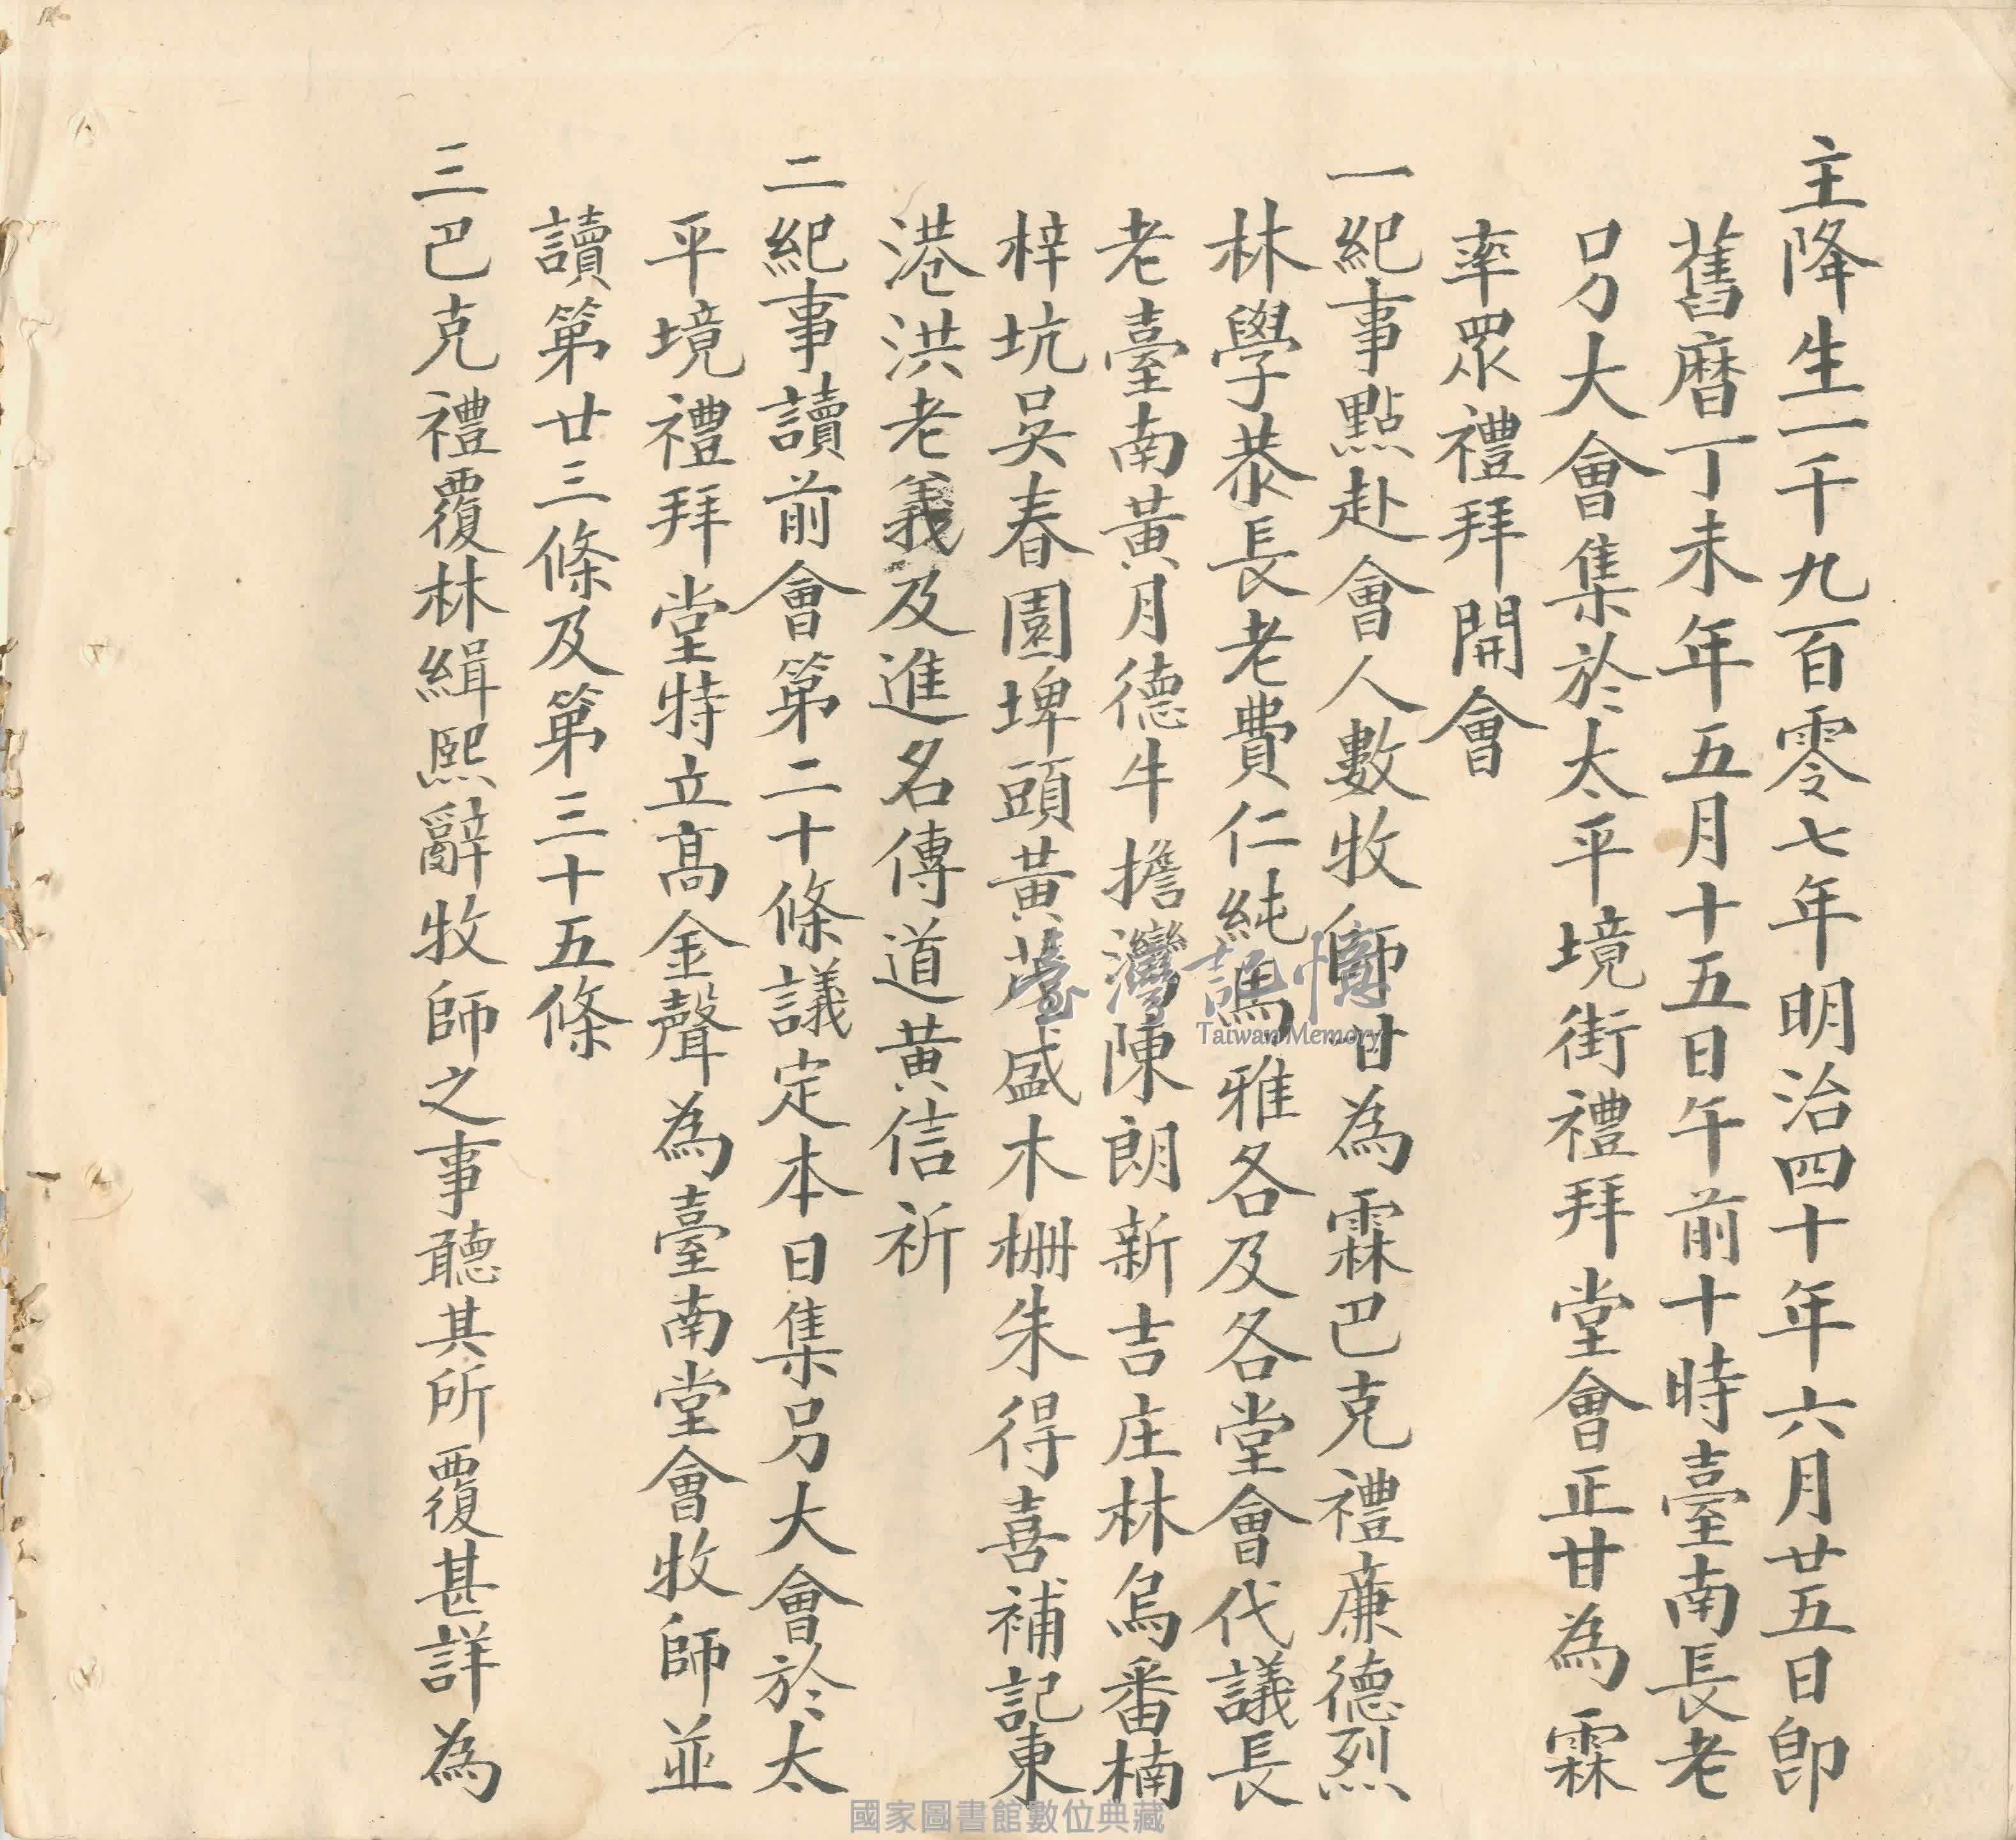 主降生一千九百零七年明治四十年六月廿五日即
舊曆丁未年五月十五日午前十時臺南長老
另大會集於太平境街禮拜堂會正甘為霖
率眾禮拜開會
一紀事點赴會人數牧師甘為霖巴克禮廉德烈
林學恭長老費仁純馬雅各及各堂會代議長
老臺南黃月德牛擔灣陳朗新吉庄林烏番楠
梓坑吳春園埤頭黃臺盛木柵朱得喜補記東
港洪老義及進名傳道黃信祈
二紀事讀前會第二十條議定本日集另大會於太
平境禮拜堂特立高金聲為臺南堂會牧師並
讀第廿三條及第三十五條
三巴克禮覆林緝熙辭牧師之事聽其所覆甚詳為
臺灣記憶
Taiwan Memory
國家圖書館數位典藏